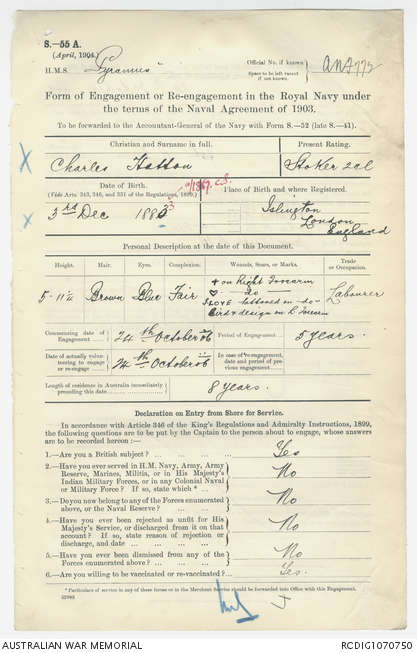 S.—55 A.
(April, 1904.)
H.M.S. Pyramus
Official No. if known
Space to be left vacant if not known.
ANF 772
Form of Engagement or Re-engagement in the Royal Navy under
the terms of the Naval Agreement of 1903.
To be forwarded to the Accountant-General of the Navy with Form S.—52 (late S.—41).
Christian and Surname in full.
Present Rating.
Charles Hatton
Stoker 2 cl
Date of Birth.
(Vide Arts. 343, 346, and 351 of the Regulations, 1899.)
Place of Birth and where Registered.
3rd Dec 1883
Islington
London
England
Personal Description at the date of this Document.
Height.
Hair.
Eyes.
Complexion.
Wounds, Scars, or Marks.
Trade or Occupation.
5-11¼
Brown
Blue
Fair
+ on Right Forearm
♡ do
LOVE tattooed on do
Bird & design on L Forearm
Labourer
Commencing date of Engagement
24th October 06
Period of Engagement
5 years.
Date of actually volunteering to engage or re-engage
24th October 06
In case of re-engagement, date and period of previous engagement
Length of residence in Australia immediately preceding this date
8 years.
Declaration on Entry from Shore for Service.
In accordance with Article 346 of the King's Regulations and Admiralty Instructions, 1899,
the following questions are to be put by the Captain to the person about to engage, whose answers
are to be recorded hereon :—
1.—Are you a British subject? ... Yes
2.—Have you ever served in H.M. Navy, Army, Army Reserve, Marines, Militia, or in His Majesty's Indian Military Forces, or in any Colonial Naval or Military Force? If so, state which * ... No
3.—Do you now belong to any of the Forces enumerated above, or the Naval Reserve? ... No
4.—Have you ever been rejected as unfit for His Majesty's Service, or discharged from it on that account? If so, state reason of rejection or discharge, and date ... No
5.—Have you ever been dismissed from any of the Forces enumerated above? ... No
6.—Are you willing to be vaccinated or re-vaccinated? ... Yes.
* Particulars of service in any of these forms or in the Merchant Service should be forwarded into Office with this Engagement.
AUSTRALIAN WAR MEMORIAL
RCDIG1070750